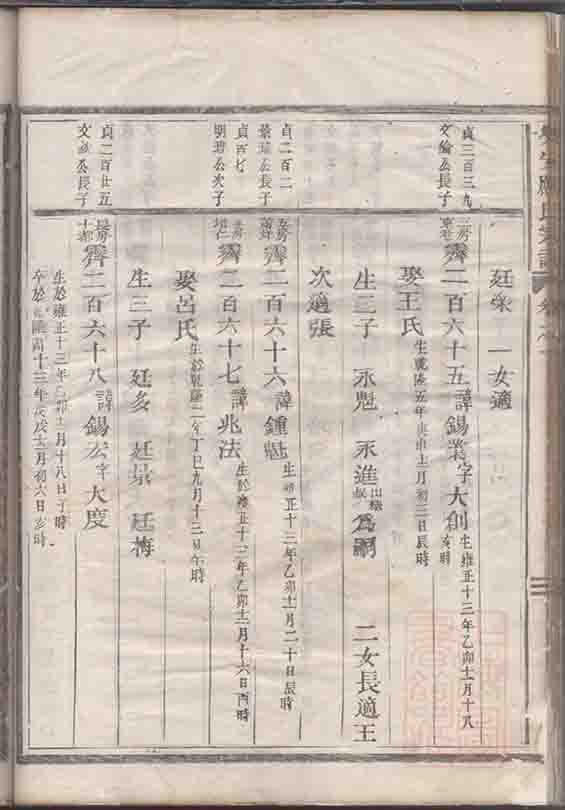 廷采 一女適
貞三百三九
文倫公長子
霽二百六十五諱錫業字大創生雍正十三年乙卯十二月十八
亥時
娶王氏生乾隆五年庚申十二月初三日辰時
生三子 永魁 永進出繼 為嗣 二女長適王
次適張
貞二百二
公長子
霽二百六十六諱鍾魁生雍正十三年乙卯十一月二十日辰時
貞百七
明瑋公次子
霽二百六十七諱兆法生於雍正十三年乙卯十二月十六日酉時
娶呂氏生於乾隆二年丁巳九月十三日午時
生三子 廷多 廷景 廷梅
貞二百廿五
文公長子
霽二百六十八諱錫公字大度
生於雍正十三年乙卯十二月十八日子時
卒於乾隆四十三年戊戌十二月初六日亥時